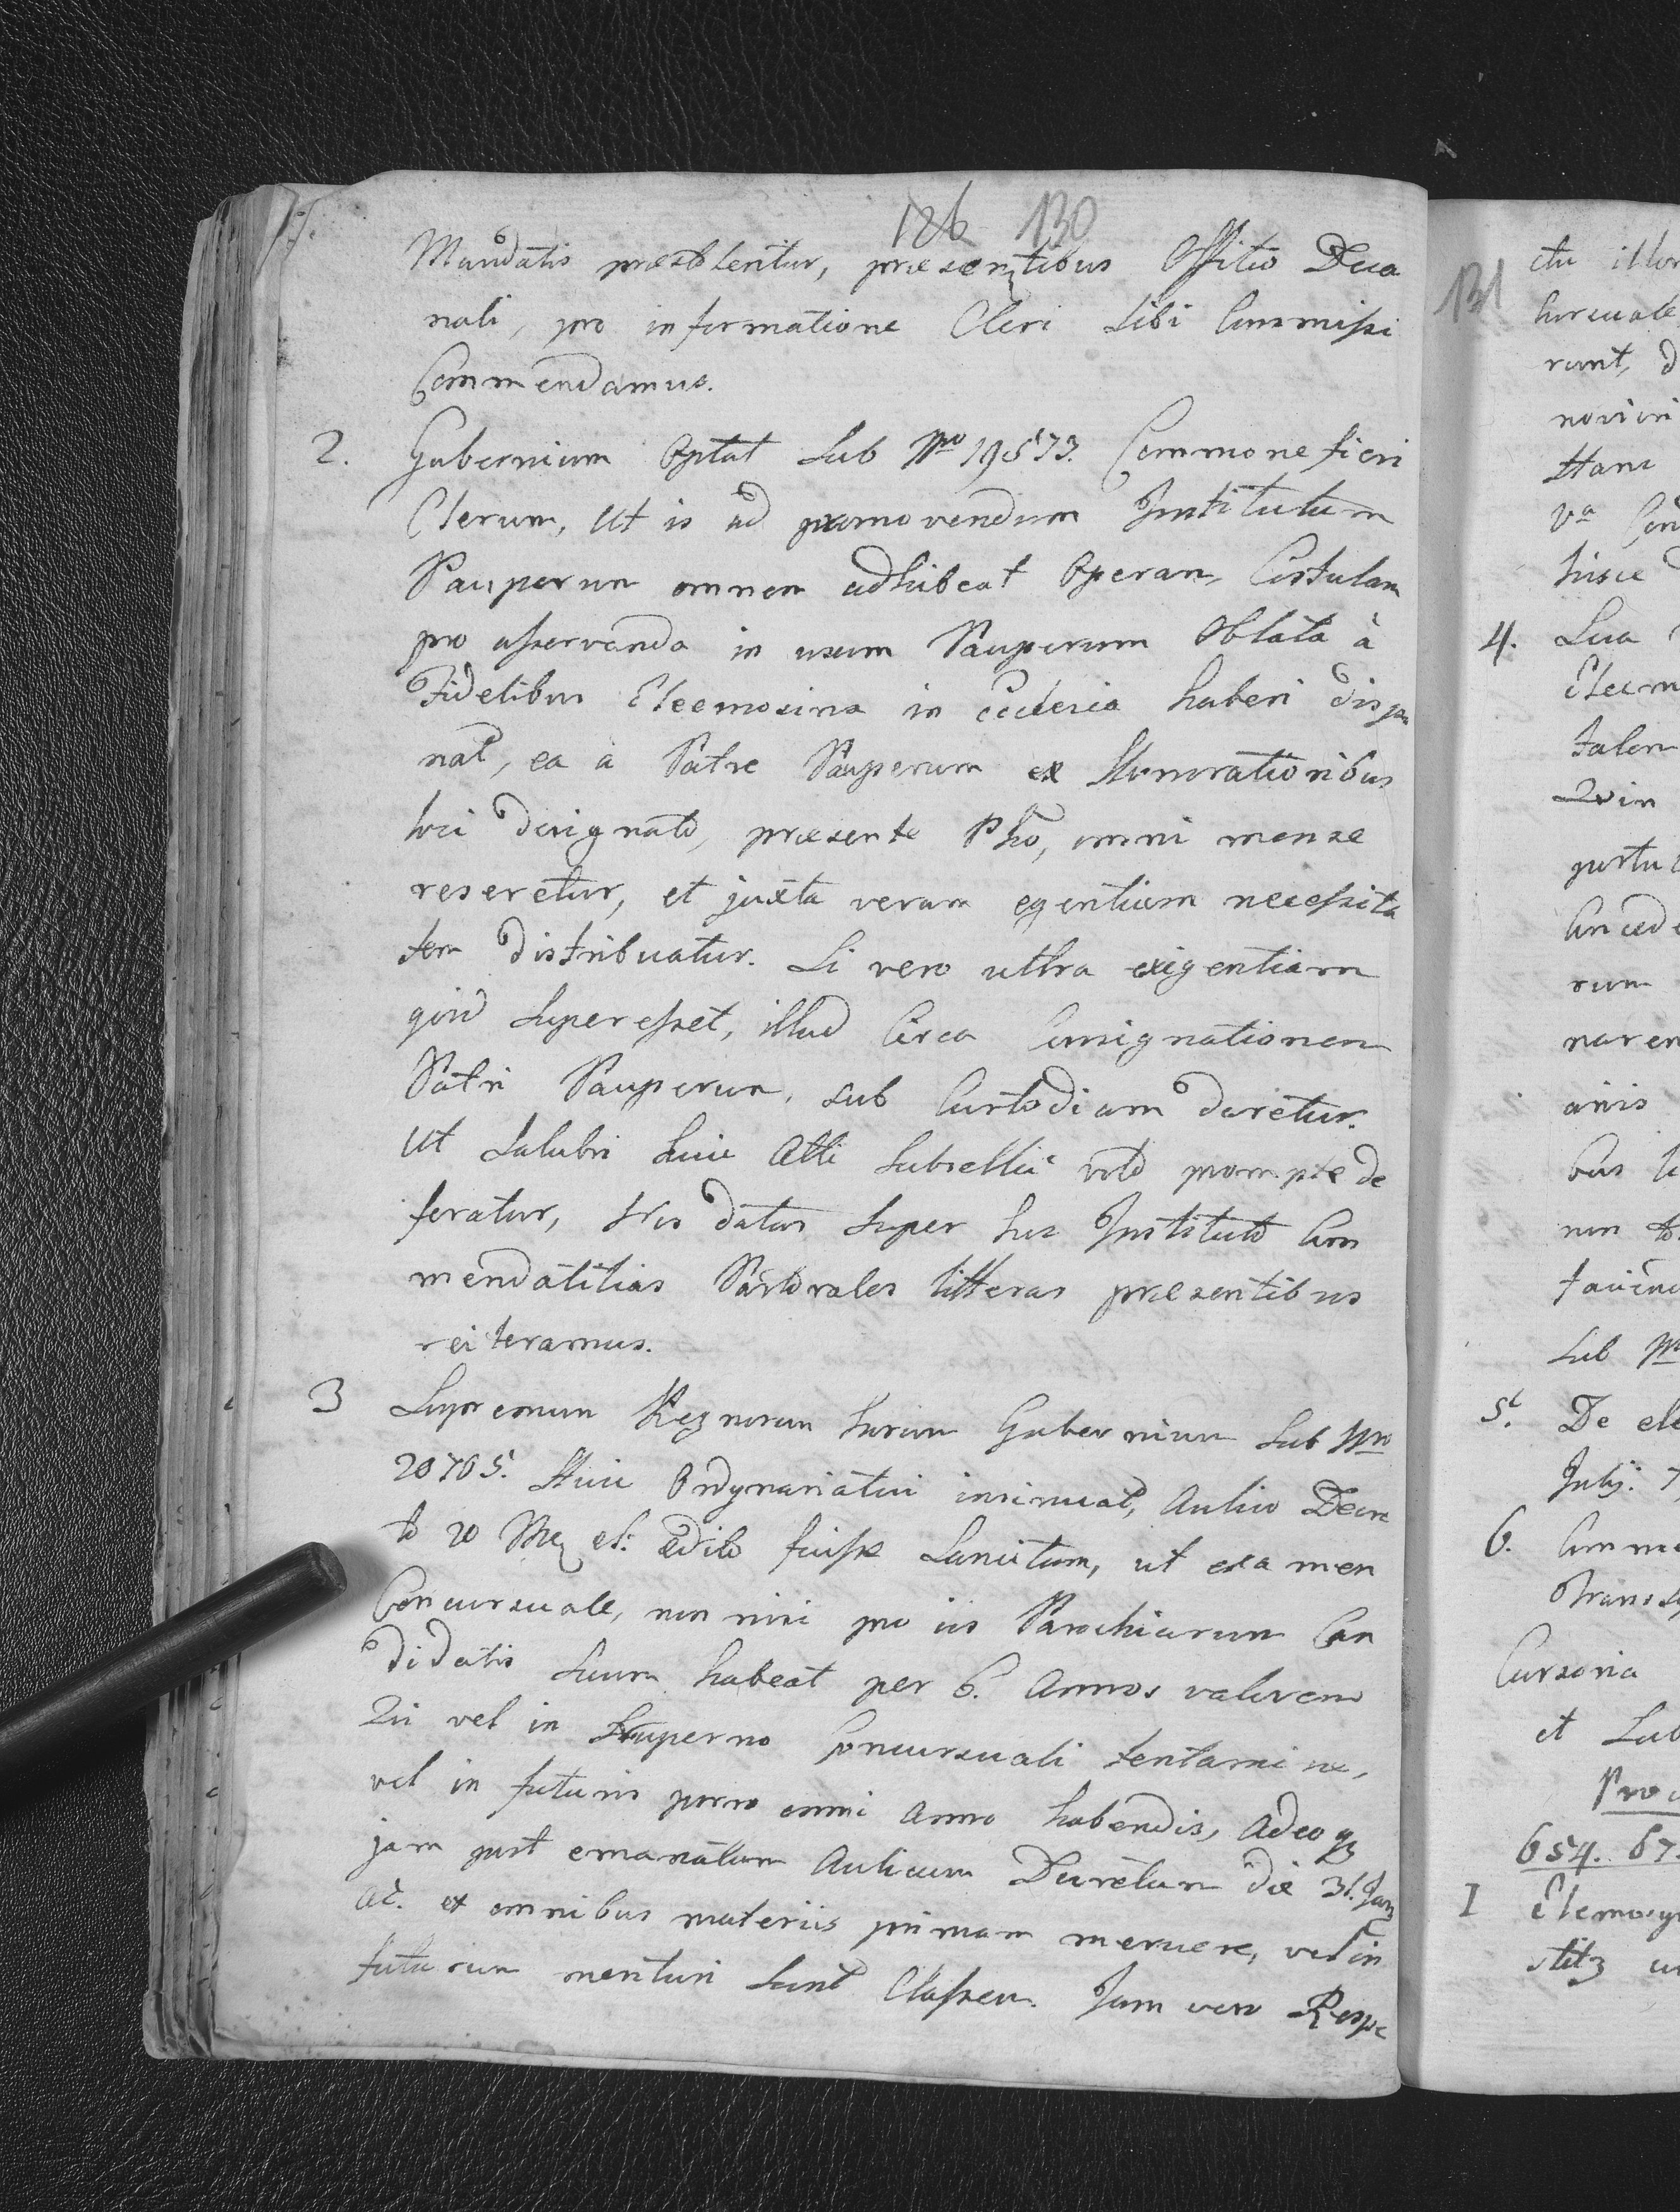 126 130
Mandatis praestolentur, praesentibus Offitio Deca
nali, pro informatione Cleri Sibi Commissi
Commendamus.
2. Gubernium Optat Sub Nro 19573. Commonefieri
Clerum, Ut is ad promovendum Institutum
Pauperum omnem adhibeat Operam, Cistulam
pro asservanda in usum Pauperum Oblata à
Fidelibus Eleemosina in Ecclesia haberi dispo
nat, ea à Patre Pauperum ex Honoratioribus
loci designato, praesente Pho, omni mense
reseretur, et juxta veram egentium necessita
tem distribuatur. Si vero ultra exigentiam
quid Superesset, illud Circa Consignationem
Patri Pauperum, sub Custodiam daretur.
Ut Salubri huic Alti Subsellii voto prompte de
feratur, Nos datas Super hoc Instituto Com
mendatitias Pastorales litteras praesentibus
reiteramus.
3 Supremum Regnorum horum Gubernium Sub Nro
20705. Huic Ordynariatui insinuat, Aulico Decre
to 20 edito fuisse Sancitum, ut examen
Concursuale, non nisi pro iis Parochiarum Can
didatis Suum habeat per 6. Annos valorem
Qui vel in Superno Concursuali tentamine,
vel in futuris porro omni Anno habendis, Adeoq
jam post emanatum Aulicum Decretum die 31. Jan
ac. ex omnibus materiis primam meruere, vel in
futurum merituri Sunt Classem. Jam vero Respe
131
ctu illor
runt, d
4. Sua
Eleem
talem
rum
naren
Sub Nr
5. De ele
Julij. 7
6.
Cursoria
et Sub
654. 67
I Elemosy